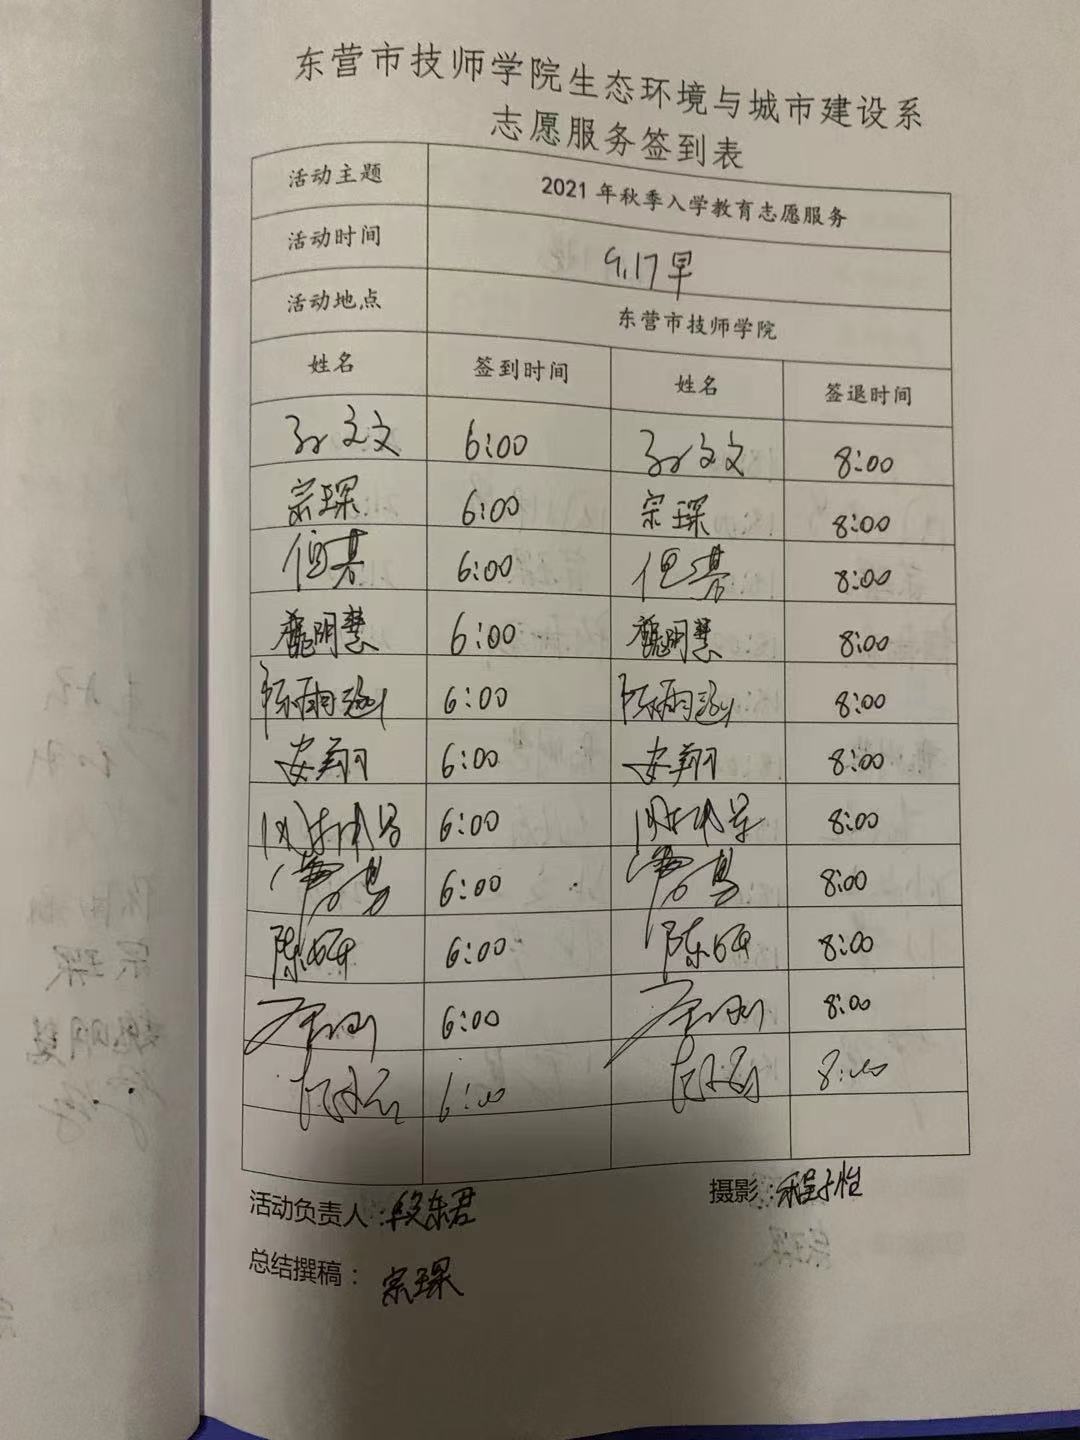 东营市技师学院生态环境与城市建设系
志愿服务签到表
活动主题 2021年秋季入学教育志愿服务
活动时间 9.17早
活动地点 东营市技师学院
姓名 签到时间 姓名 签退时间
孙文文 6:00 孙文文 8:00
宗琛 6:00 宗琛 8:00
6:00 8:00
魏明慧 6:00 魏明慧 8:00
陈雨涵 6:00 陈雨涵 8:00
安翔 6:00 安翔 8:00
6:00 8:00
6:00 8:00
陈妍 6:00 陈妍 8:00
6:00 8:00
6:00 8:00
活动负责人:段东君 摄影:程子怡
总结撰稿: 宗琛